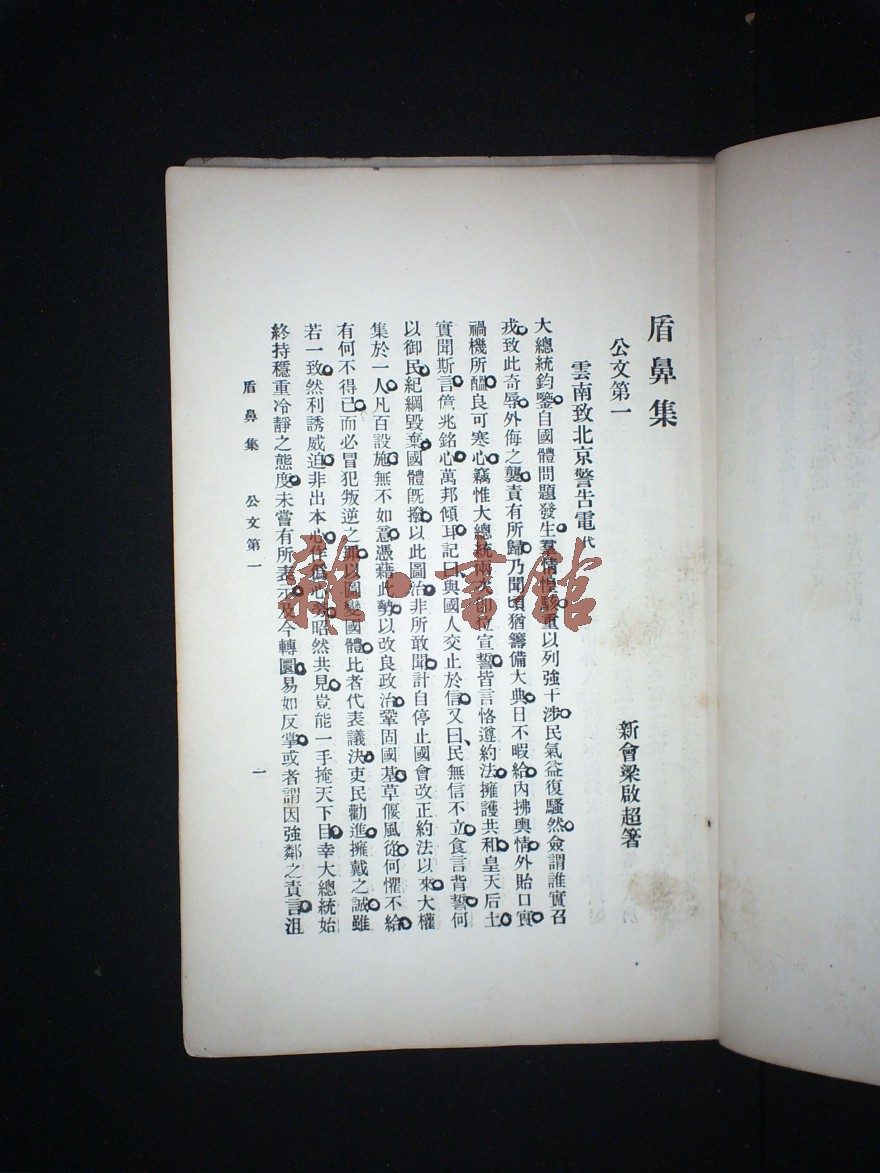 盾鼻集
新會梁啟超箸
公文第一
雲南致北京警告電代
大總統鈞鑒。自國體問題發生。羣情惶駭。重以列強干涉。民氣益復騷然。僉謂誰實召
戎。致此奇辱。外侮之襲。責有所歸。乃聞頃猶籌備大典。日不暇給。內拂輿情。外貽口實。
禍機所醞。良可寒心。竊惟大總統兩次即位宣誓。皆言恪遵約法。擁護共和。皇天后土。
實聞斯言。億兆銘心。萬邦傾耳。記曰。與國人交止於信。又曰。民無信不立。食言背誓。何
以御民。紀綱毀棄。國體旣撥。以此圖治。非所敢聞。計自停止國會改正約法以來。大權
集於一人。凡百設施。無不如意。憑藉此勢。以改良政治。鞏固國基。草偃風從。何懼不給。
有何不得已。而必冒犯叛逆之罪。以圖變國體。比者代表議決。吏民勸進。擁戴之誠。雖
若一致。然利誘威迫。非出本心。作僞心勞。昭然共見。豈能一手掩天下目。幸大總統始
終持穩重冷靜之態度。未嘗有所表示。及今轉圜。易如反掌。或者謂因強鄰之責言。沮
盾鼻集 公文第一 一
雜·書館